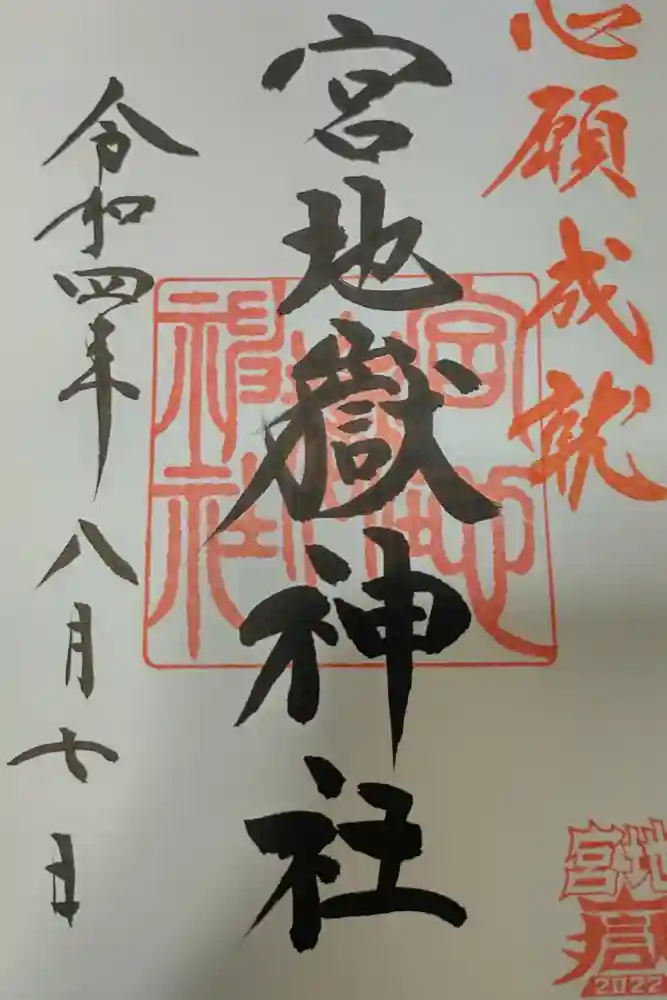 心願成就
宮地嶽神社
令和四年八月七日
宮地嶽神社
宮地
嶽
2022